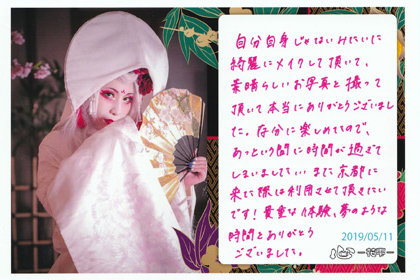 自分自身じゃないみたいに
綺麗にメイクして頂いて、
素晴らしいお写真と撮って
頂いて本当にありがとうございまし
た。存分に楽しめたので、
あっという間に時間が過ぎて
しまいました…また京都に
来た際は利用させて頂きたい
です!貴重な体験、夢のような
時間をありがとう
ございました。
2019/05/11
心 花雫